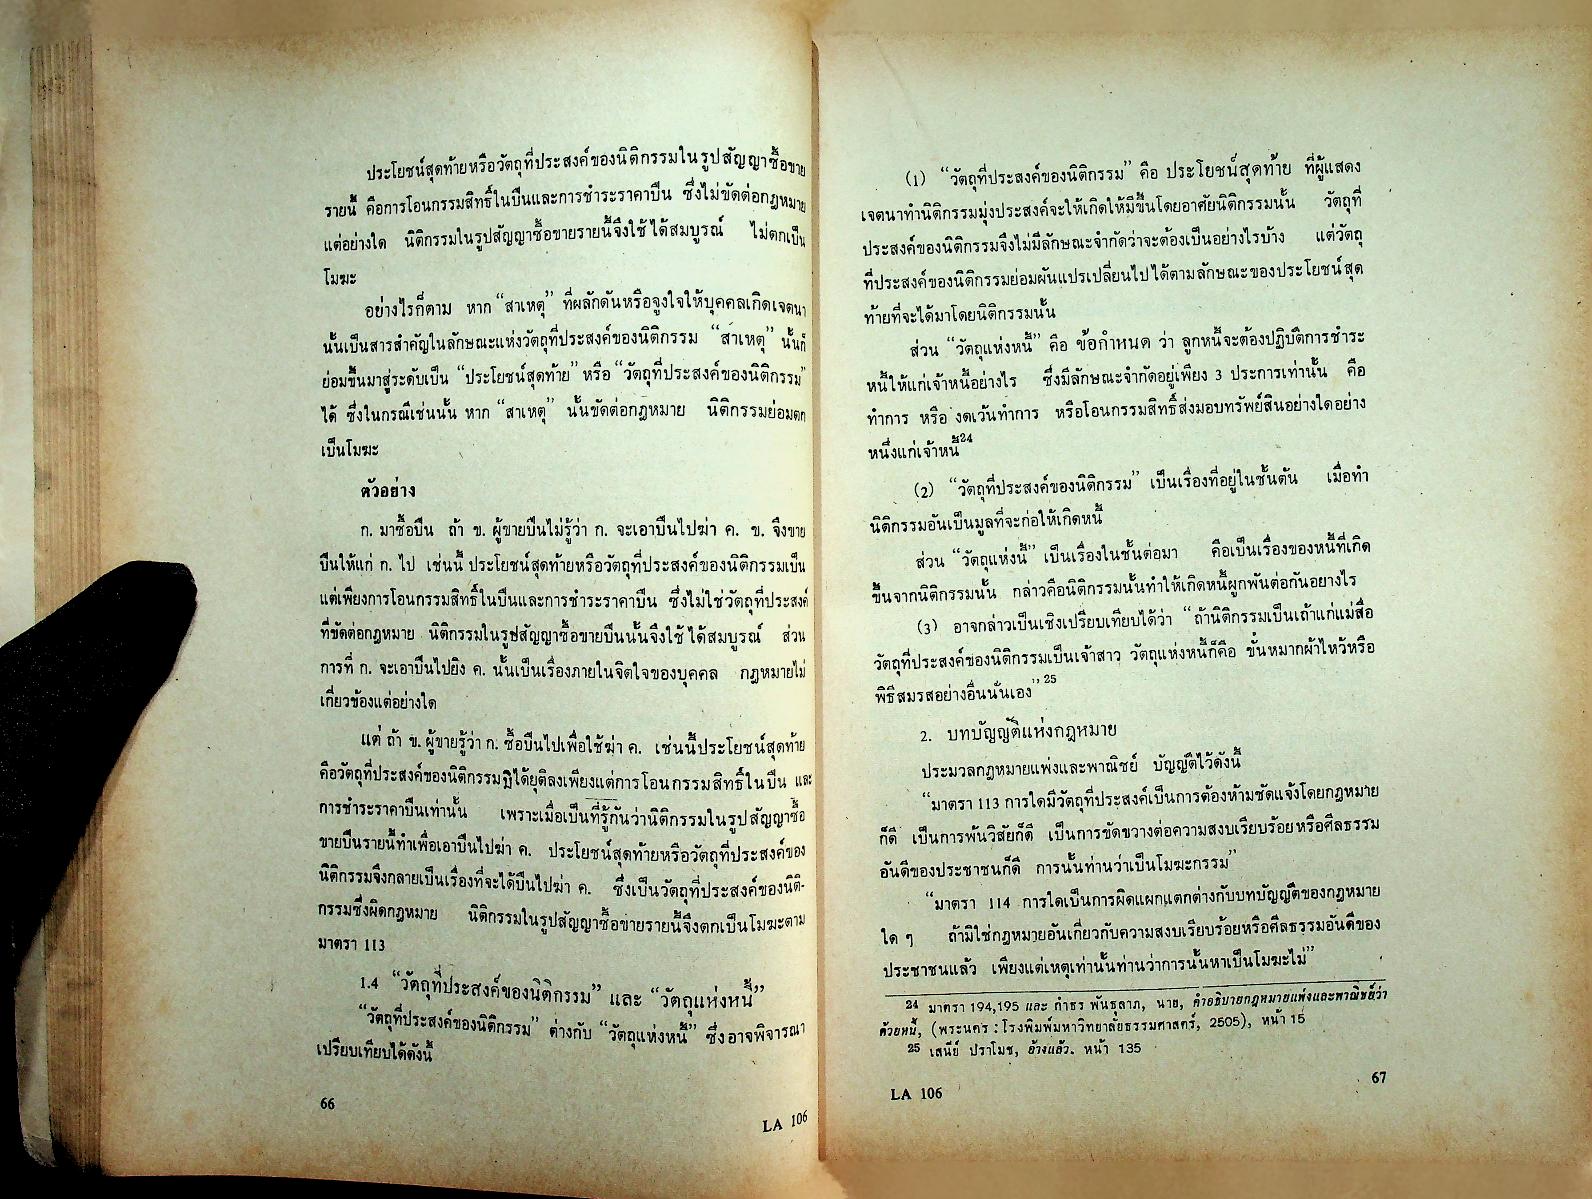 ประโยชน์สุดท้ายหรือวัตถุที่ประสงค์ของนิติกรรมในรูปสัญญาซื้อขาย
รายนี้ คือการโอนกรรมสิทธิ์ในปืนและการชำระราคาปืน ซึ่งไม่ขัดต่อกฎหมาย
แต่อย่างใด นิติกรรมในรูปสัญญาซื้อขายรายนี้จึงใช้ได้สมบูรณ์ ไม่ตกเป็น
โมฆะ
อย่างไรก็ตาม หาก “สาเหตุ” ที่ผลักดันหรือจูงใจให้บุคคลเกิดเจตนา
นั้นเป็นสารสำคัญในลักษณะแห่งวัตถุที่ประสงค์ของนิติกรรม “สาเหตุ” นั้นก็
ย่อมขึ้นมาสู่ระดับเป็น “ประโยชน์สุดท้าย” หรือ “วัตถุที่ประสงค์ของนิติกรรม”
ได้ ซึ่งในกรณีเช่นนั้น หาก “สาเหตุ” นั้นขัดต่อกฎหมาย นิติกรรมย่อมตก
เป็นโมฆะ
ตัวอย่าง
ก. มาซื้อปืน ถ้า ข. ผู้ขายปืนไม่รู้ว่า ก. จะเอาปืนไปฆ่า ค. ข. จึงขาย
ปืนให้แก่ ก. ไป เช่นนี้ ประโยชน์สุดท้ายหรือวัตถุที่ประสงค์ของนิติกรรมเป็น
แต่เพียงการโอนกรรมสิทธิ์ในปืนและการชำระราคาปืน ซึ่งไม่ใช่วัตถุที่ประสงค์
ที่ขัดต่อกฎหมาย นิติกรรมในรูปสัญญาซื้อขายปืนนั้นจึงใช้ได้สมบูรณ์ ส่วน
การที่ ก. จะเอาปืนไปยิง ค. นั้นเป็นเรื่องภายในจิตใจของบุคคล กฎหมายไม่
เกี่ยวข้องแต่อย่างใด
แต่ ถ้า ข. ผู้ขายรู้ว่า ก. ซื้อปืนไปเพื่อใช้ฆ่า ค. เช่นนี้ประโยชน์สุดท้าย
คือวัตถุที่ประสงค์ของนิติกรรมมิได้ยุติลงเพียงแต่การโอนกรรมสิทธิ์ในปืน และ
การชำระราคาปืนเท่านั้น เพราะเมื่อเป็นที่รู้กันว่านิติกรรมในรูปสัญญาซื้อ
ขายปืนรายนี้ทำเพื่อเอาปืนไปฆ่า ค. ประโยชน์สุดท้ายหรือวัตถุที่ประสงค์ของ
นิติกรรมจึงกลายเป็นเรื่องที่จะได้ปืนไปฆ่า ค. ซึ่งเป็นวัตถุที่ประสงค์ของนิติ-
กรรมซึ่งผิดกฎหมาย นิติกรรมในรูปสัญญาซื้อขายรายนี้จึงตกเป็นโมฆะตาม
มาตรา 113
1.4 “วัตถุที่ประสงค์ของนิติกรรม” และ “วัตถุแห่งหนี้”
“วัตถุที่ประสงค์ของนิติกรรม” ต่างกับ “วัตถุแห่งหนี้” ซึ่งอาจพิจารณา
เปรียบเทียบได้ดังนี้
66
LA 106
(1) “วัตถุที่ประสงค์ของนิติกรรม” คือ ประโยชน์สุดท้าย ที่ผู้แสดง
เจตนาทำนิติกรรมมุ่งประสงค์จะให้เกิดให้มีขึ้นโดยอาศัยนิติกรรมนั้น วัตถุที่
ประสงค์ของนิติกรรมจึงไม่มีลักษณะจำกัดว่าจะต้องเป็นอย่างไรบ้าง แต่วัตถุ
ที่ประสงค์ของนิติกรรมย่อมผันแปรเปลี่ยนไปได้ตามลักษณะของประโยชน์สุด
ท้ายที่จะได้มาโดยนิติกรรมนั้น
ส่วน “วัตถุแห่งหนี้” คือ ข้อกำหนด ว่า ลูกหนี้จะต้องปฏิบัติการชำระ
หนี้ให้แก่เจ้าหนี้อย่างไร ซึ่งมีลักษณะจำกัดอยู่เพียง 3 ประการเท่านั้น คือ
ทำการ หรือ งดเว้นทำการ หรือโอนกรรมสิทธิ์ส่งมอบทรัพย์สินอย่างใดอย่าง
หนึ่งแก่เจ้าหนี้24
(2) “วัตถุที่ประสงค์ของนิติกรรม” เป็นเรื่องที่อยู่ในชั้นต้น เมื่อทำ
นิติกรรมอันเป็นมูลที่จะก่อให้เกิดหนี้
ส่วน “วัตถุแห่งหนี้” เป็นเรื่องในชั้นต่อมา คือเป็นเรื่องของหนี้ที่เกิด
ขึ้นจากนิติกรรมนั้น กล่าวคือนิติกรรมนั้นทำให้เกิดหนี้ผูกพันต่อกันอย่างไร
(3) อาจกล่าวเป็นเชิงเปรียบเทียบได้ว่า “ถ้านิติกรรมเป็นเถ้าแก่แม่สื่อ
วัตถุที่ประสงค์ของนิติกรรมเป็นเจ้าสาว วัตถุแห่งหนี้ก็คือ ขั้นหมากผ้าไหว้หรือ
พิธีสมรสอย่างอื่นนั่นเอง”25
2. บทบัญญัติแห่งกฎหมาย
ประมวลกฎหมายแพ่งและพาณิชย์ บัญญัติไว้ดังนี้
“มาตรา 113 การใดมีวัตถุที่ประสงค์เป็นการต้องห้ามชัดแจ้งโดยกฎหมาย
ก็ดี เป็นการพ้นวิสัยก็ดี เป็นการขัดขวางต่อความสงบเรียบร้อยหรือศีลธรรม
อันดีของประชาชนก็ดี การนั้นท่านว่าเป็นโมฆะกรรม”
“มาตรา 114 การใดเป็นการผิดแผกแตกต่างกับบทบัญญัติของกฎหมาย
ใด ๆ ถ้ามิใช่กฎหมายอันเกี่ยวกับความสงบเรียบร้อยหรือศีลธรรมอันดีของ
ประชาชนแล้ว เพียงแต่เหตุเท่านั้นท่านว่าการนั้นหาเป็นโมฆะไม่”
24 มาตรา 194,195 และ กำธร พันธุลาภ, นาย, คำอธิบายกฎหมายแพ่งและพาณิชย์ว่า
ด้วยหนี้, (พระนคร : โรงพิมพ์มหาวิทยาลัยธรรมศาสตร์, 2505), หน้า 15
25 เสนีย์ ปราโมช, อ้างแล้ว. หน้า 135
67
LA 106